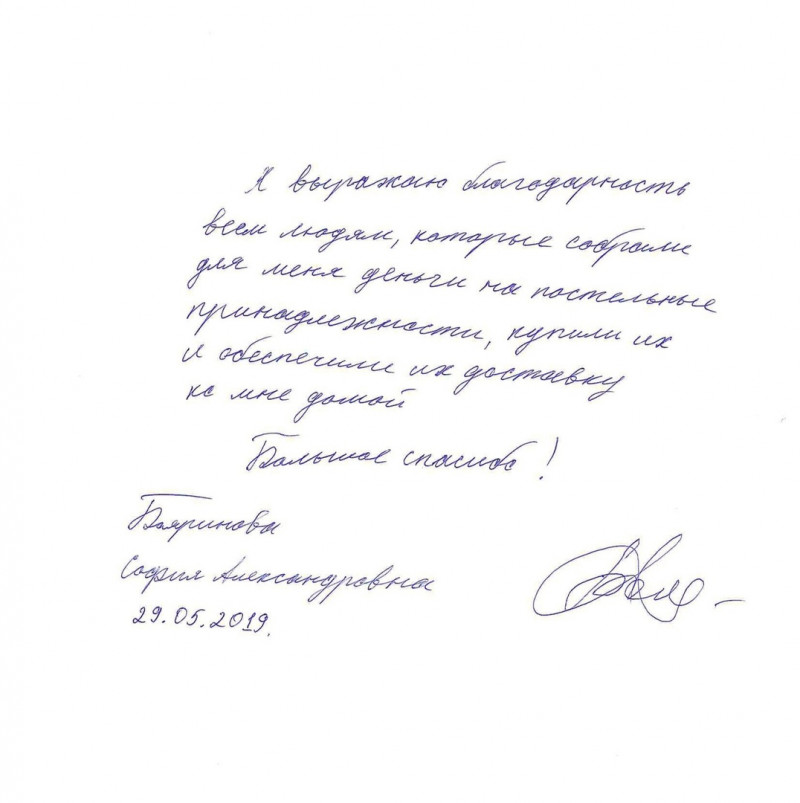 Я выражаю благодарность
всем людям, которые собрали
для меня деньги на постельные
принадлежности, купили их
и обеспечили их доставку
ко мне домой
Большое спасибо!
Бояринова
София Александровна
29.05.2019.